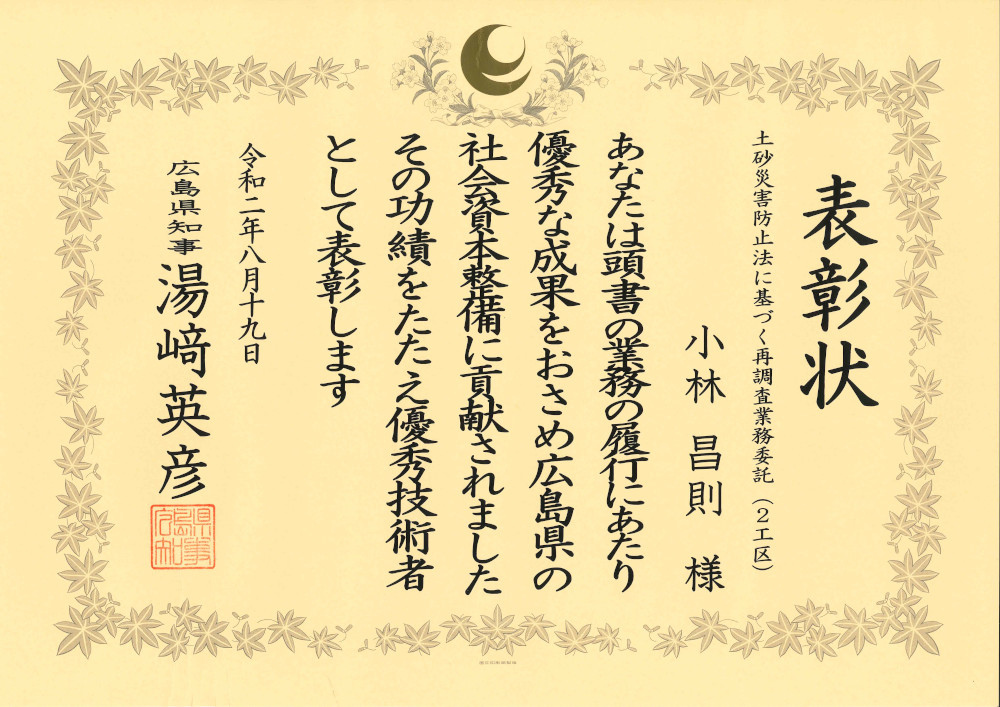 表彰状
土砂災害防止法に基づく再調査業務委託（２工区）
小林 昌則 様
あなたは頭書の業務の履行にあたり
優秀な成果をおさめ広島県の
社会資本整備に貢献されました
その功績をたたえ優秀技術者
として表彰します
令和二年八月十九日
広島県知事 湯﨑英彦